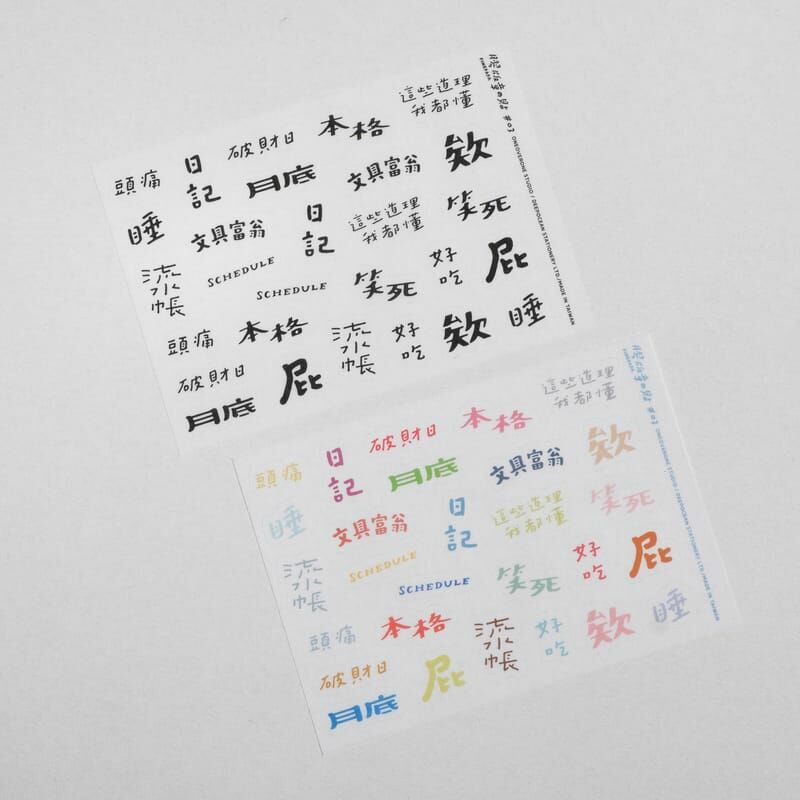 這些道理
我都懂
本格
破財日
日記
頭痛
欸
文具富翁
月底
睡
笑死
這些道理
我都懂
日記
文具富翁
流水帳
SCHEDULE
屁
好吃
笑死
SCHEDULE
頭痛
本格
流水帳
好吃
欸
睡
破財日
屁
月底
#03 OMEOVERONE STUDIO / DEEPOCEAN STATIONERY LTD./MADE IN TAIWAN
這些道理
我都懂
本格
破財日
日記
頭痛
欸
文具富翁
月底
睡
笑死
這些道理
我都懂
日記
文具富翁
流水帳
SCHEDULE
屁
好吃
笑死
SCHEDULE
頭痛
本格
流水帳
好吃
欸
睡
破財日
屁
月底
#03 OMEOVERONE STUDIO / DEEPOCEAN STATIONERY LTD./MADE IN TAIWAN